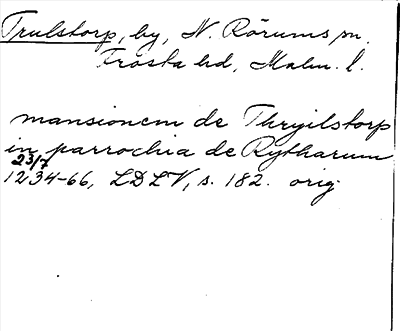 Trulstorp, by, N. Rörums sn.
Frosta hd, Malm. l.
mansionem de Thryilstorp
in parrochia de Rytharum
23/7
1234-66, LDLV, s. 182. orig